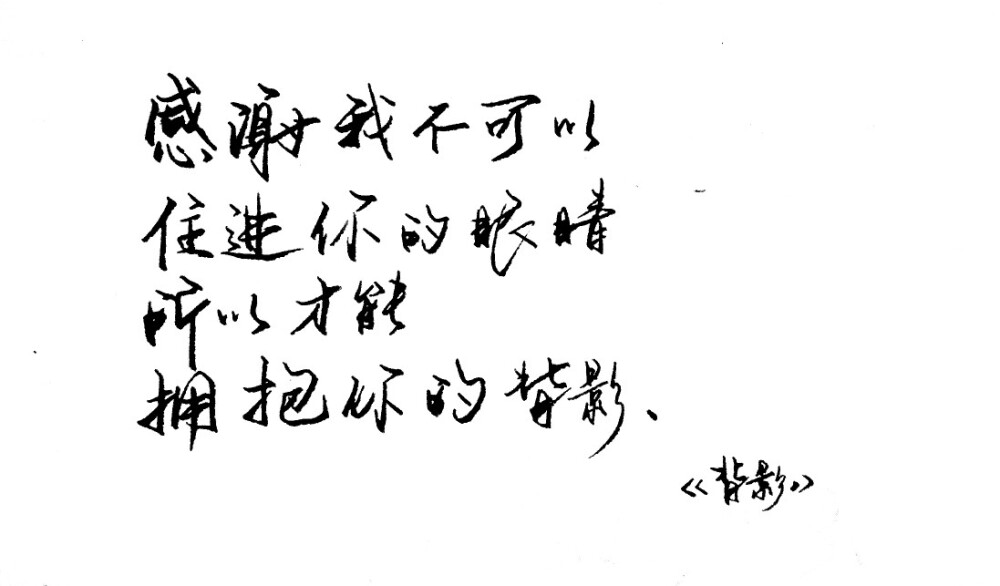 感谢我不可以
住进你的眼睛
所以才能
拥抱你的背影、
《背影》